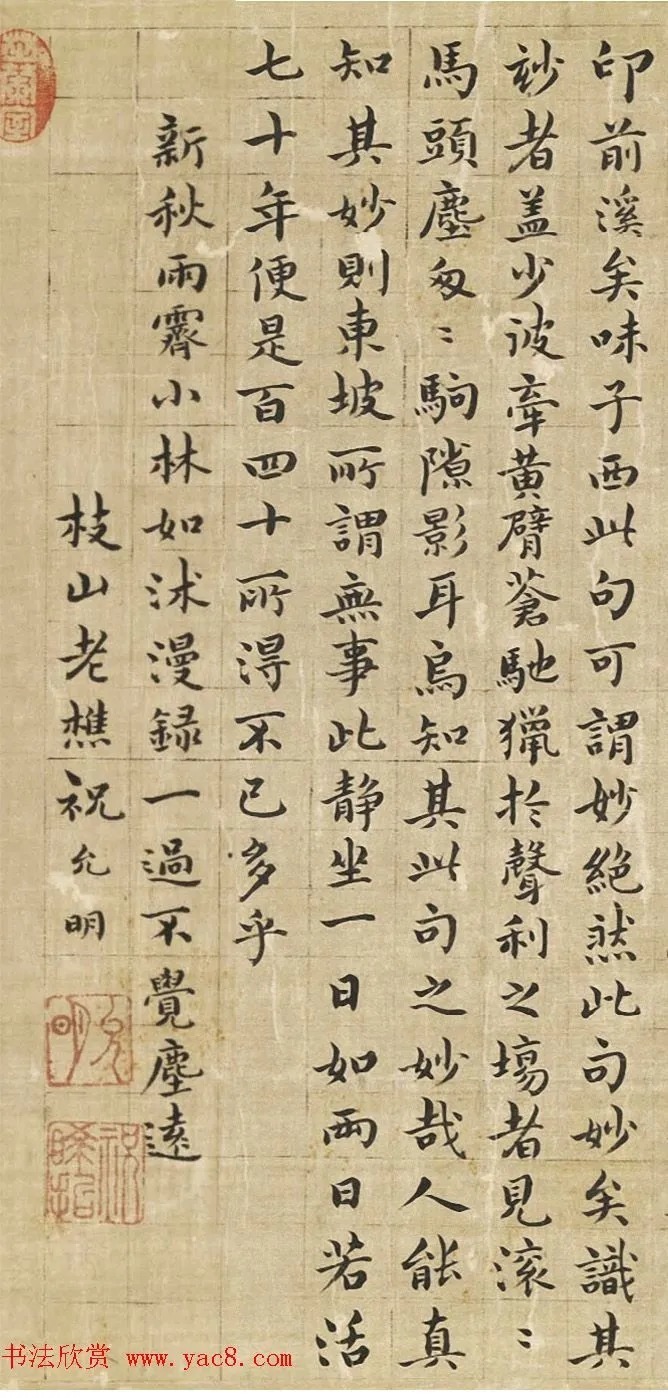 印前溪矣味子西此句可謂妙絶然此句妙矣識其
玅者盖少彼牽黄臂蒼馳獵扵聲利之塲者見滚〻
馬頭塵匆〻駒隙影耳烏知其此句之妙哉人能真
知其妙則東坡所謂無事此静坐一日如兩日若活
七十年便是百四十所得不已多乎
新秋雨霽小林如沐漫録一過不覺塵遠
枝山老樵祝允明
允明
书法欣赏 www.yac8.com